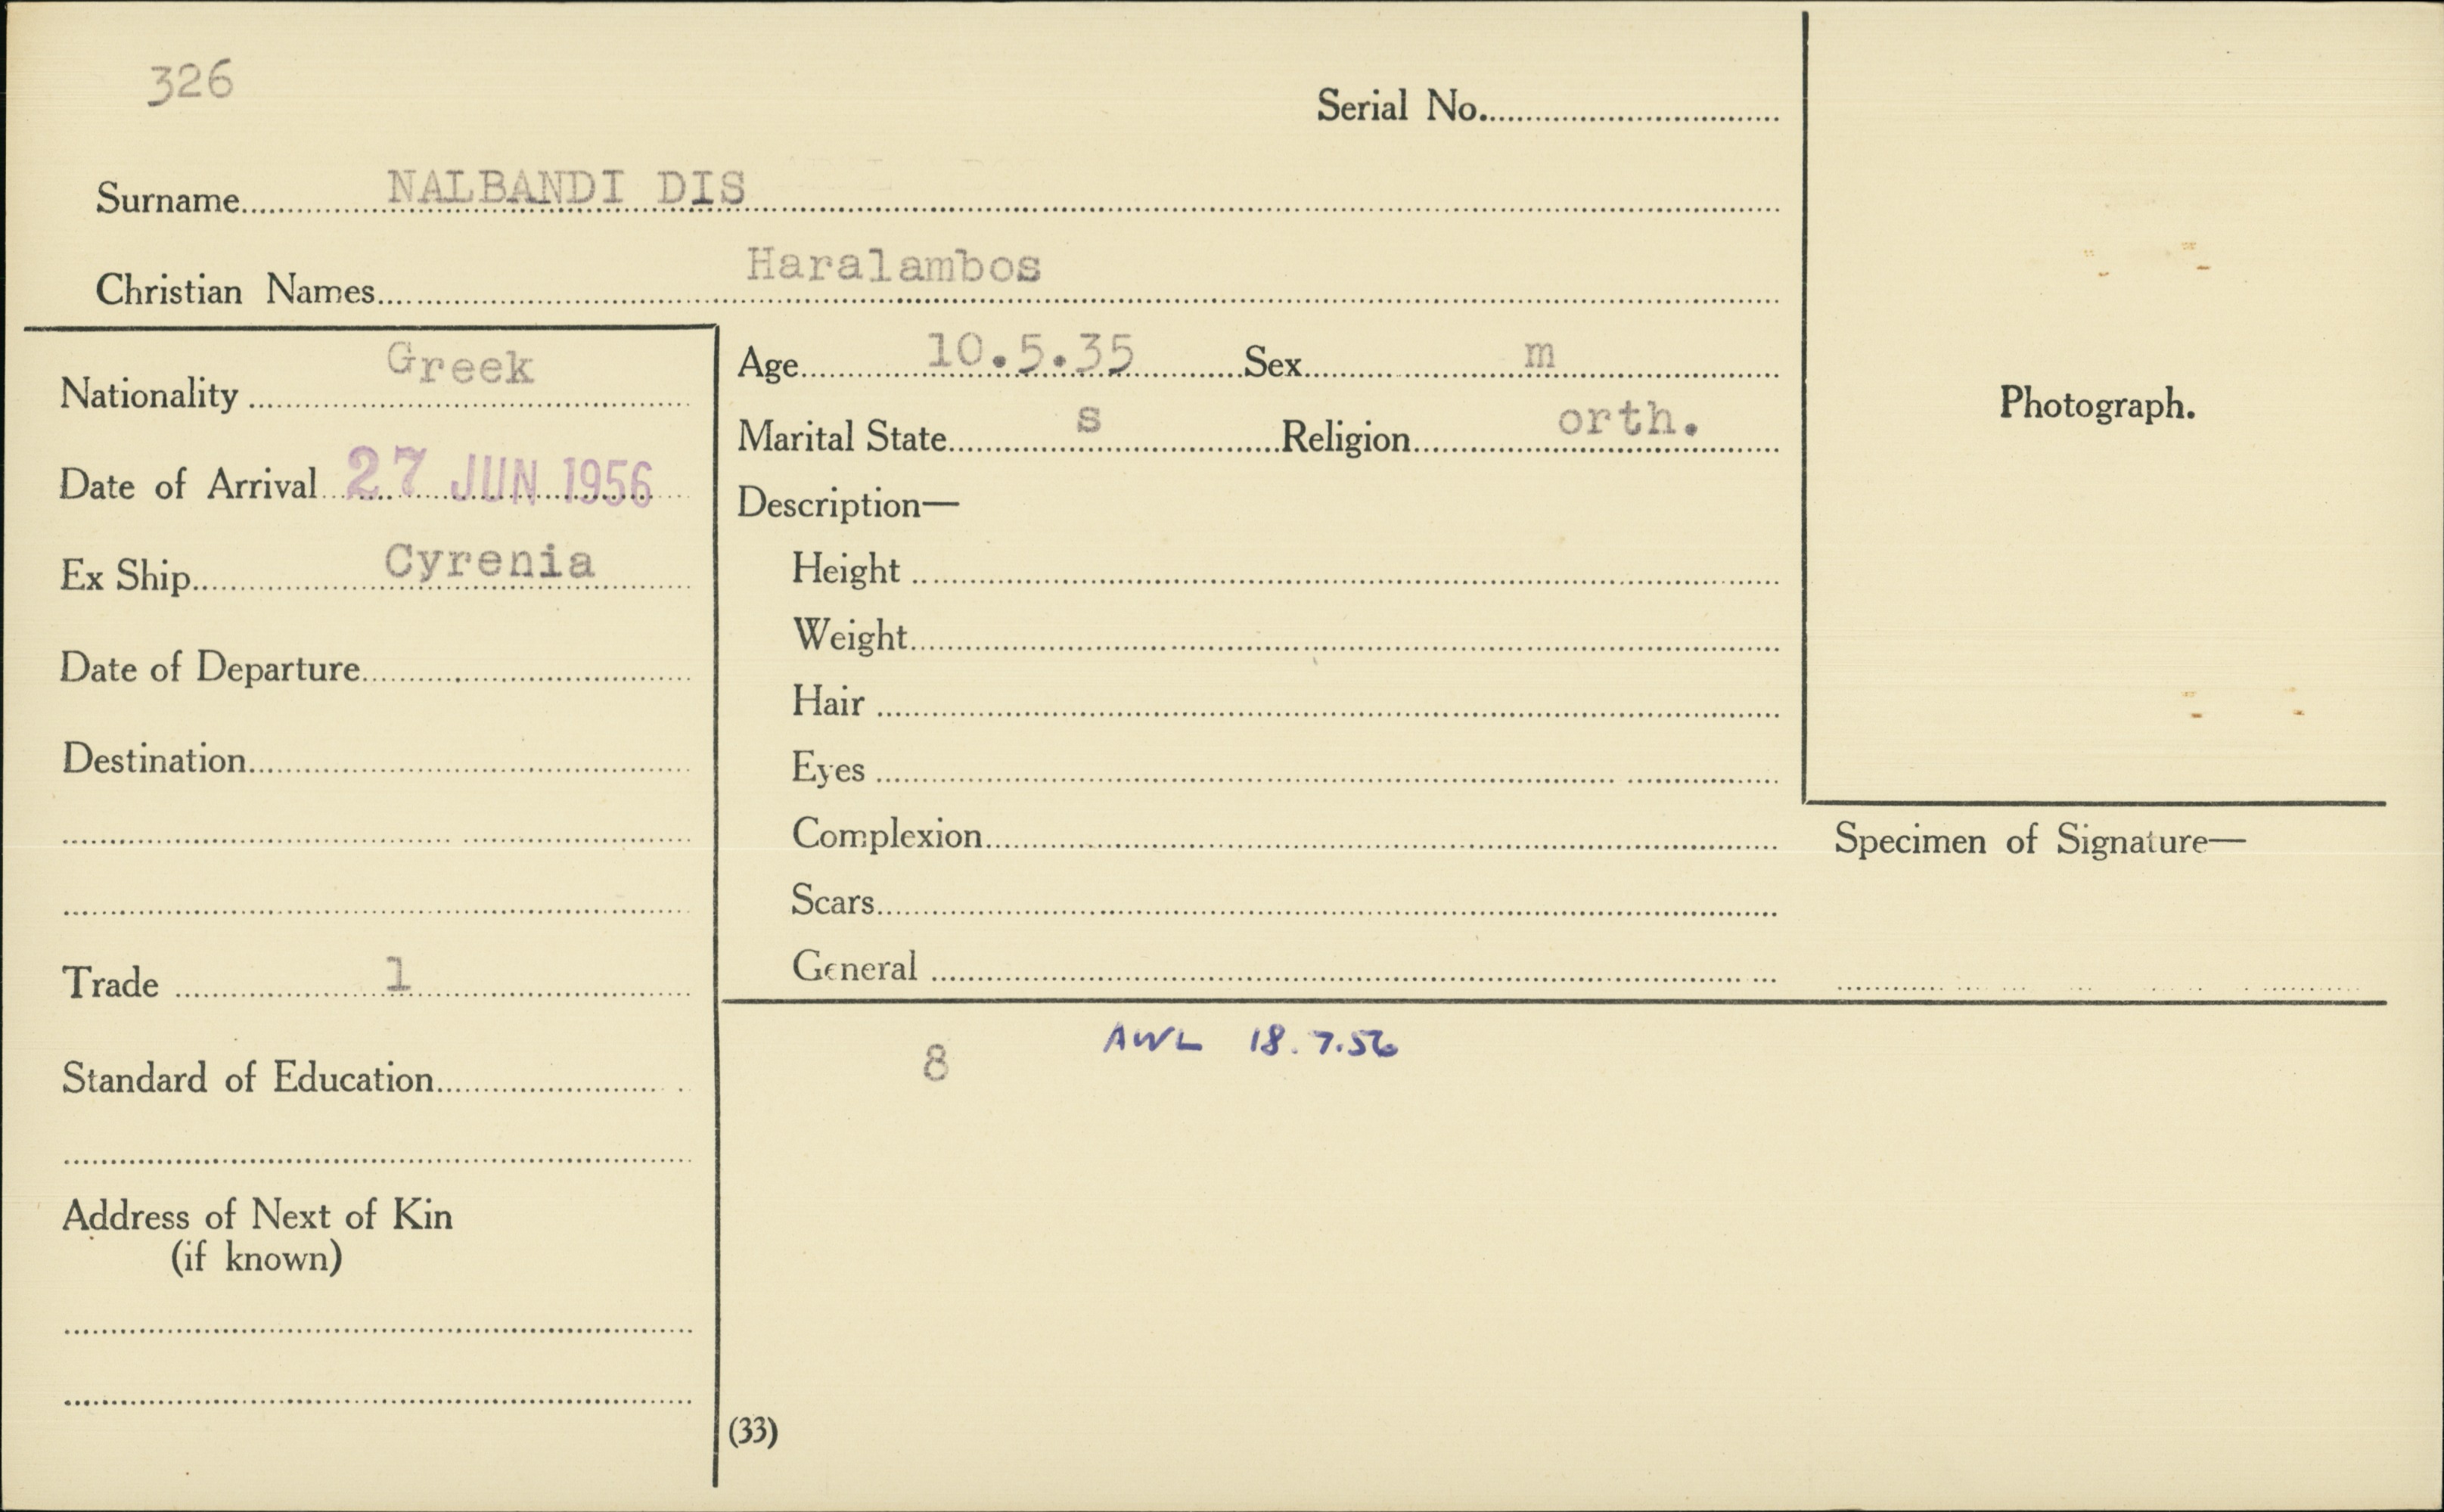 326
Serial No.
Surname NALBANDI DIS
Christian Names Haralambos
Nationality Greek
Date of Arrival 27 JUN 1956
Ex Ship Cyrenia
Date of Departure
Destination
Trade 1
Standard of Education
Address of Next of Kin
(if known)
Age 10.5.35 Sex m
Marital State s Religion orth.
Description—
Height
Weight
Hair
Eyes
Complexion
Scars
General
Photograph.
Specimen of Signature—
8 AWL 18.7.56
(33)